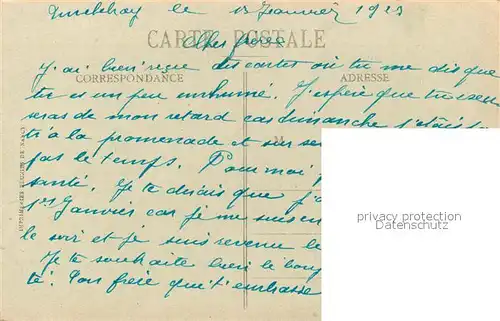 le 13 Janvier 1923
CARTE POSTALE
Cher frère
J'ai bien reçu des cartes où tu me dis que
CORRESPONDANCE ADRESSE
tu es un peu enrhumé. J'espère que tu
seras de mon retard car dimanche j'étais
à la promenade et
pas le temps. Pour moi
santé. Je te dirais que j'
1er Janvier car je me suis
le soir et je suis revenue le
Je te souhaite bien le bon
té. Ton frère qui t'embrasse
privacy protection
Datenschutz